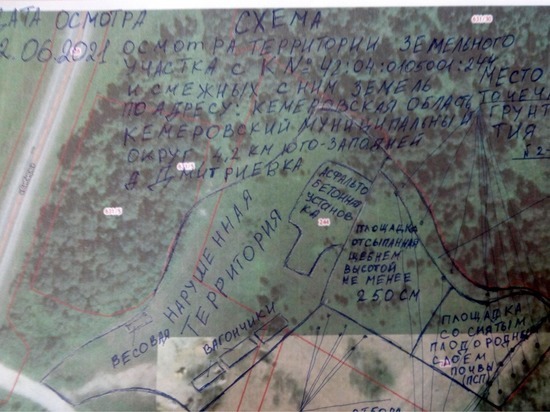 ДАТА ОСМОТРА
2.06.2021
СХЕМА
ОСМОТРА ТЕРРИТОРИИ ЗЕМЕЛЬНОГО
УЧАСТКА С К № 42:04:0105001:244
И СМЕЖНЫХ С НИМ ЗЕМЕЛЬ
ПО АДРЕСУ: КЕМЕРОВСКАЯ ОБЛАСТЬ
КЕМЕРОВСКИЙ МУНИЦИПАЛЬНЫЙ
ОКРУГ 4,2 КМ ЮГО-ЗАПАДНЕЙ
Д ДМИТРИЕВКА
МЕСТО
ТОЧЕЧ
ГРУНТ
ТИЯ
АСФАЛЬТО
БЕТОННАЯ
УСТАНОВ
КА
244
НАРУШЕННАЯ
ТЕРРИТОРИЯ
ПЛОЩАДКА
ОТСЫПАННАЯ
ЩЕБНЕМ
ВЫСОТОЙ
НЕ МЕНЕЕ
250 СМ
ВЕСОВАЯ
ВАГОНЧИКИ
ПЛОЩАДКА
СО СНЯТЫМ
ПЛОДОРОДНЫМ
СЛОЕМ
ПОЧВЫ
(ПСП)
ОТБОРА